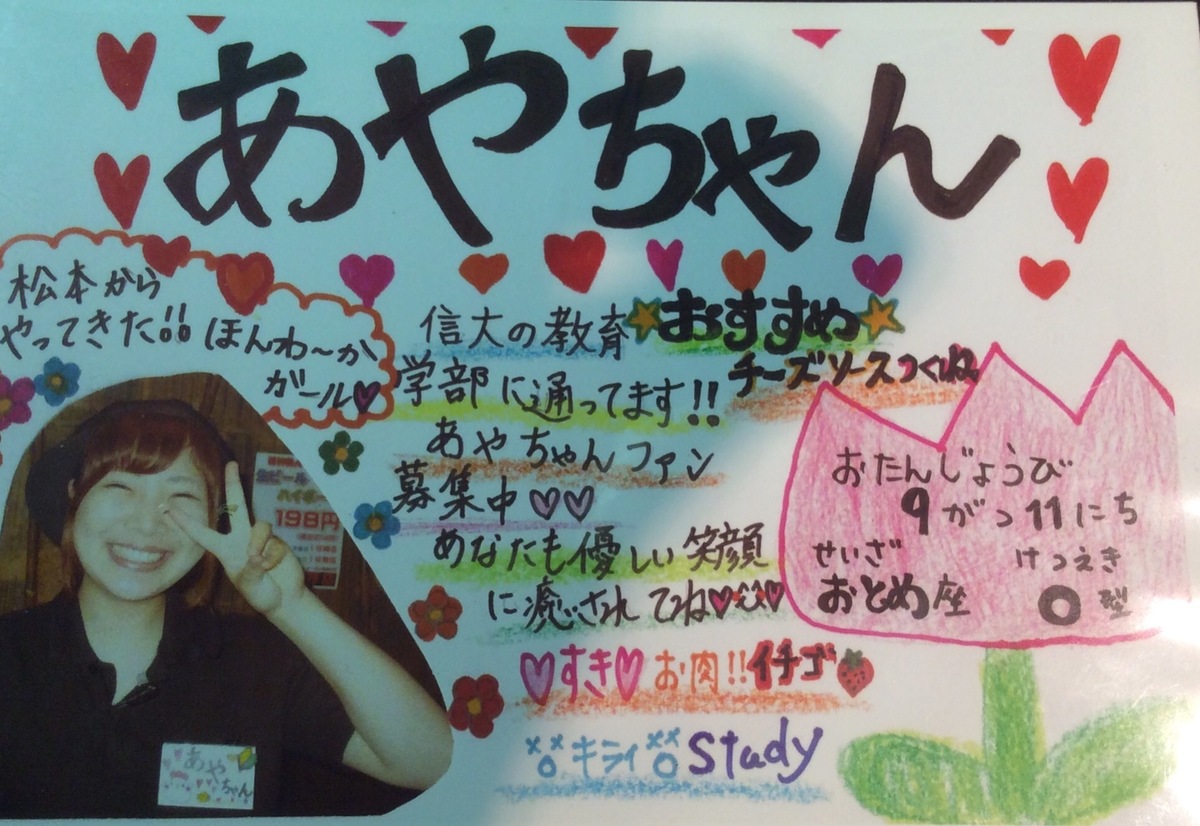 あやちゃん
松本から
やってきた!!
ほんわ〜か
ガール
信大の教育
学部に通ってます!!
あやちゃんファン
募集中♡♡
あなたも優しい笑顔
に癒されてね
♡すき♡ お肉!! イチゴ
キライ Study
おすすめ
チーズソースつくね
おたんじょうび
9がつ11にち
せいざ
おとめ座
けつえき
O型
生ビール
ハイボール
198円
あや
ちゃん